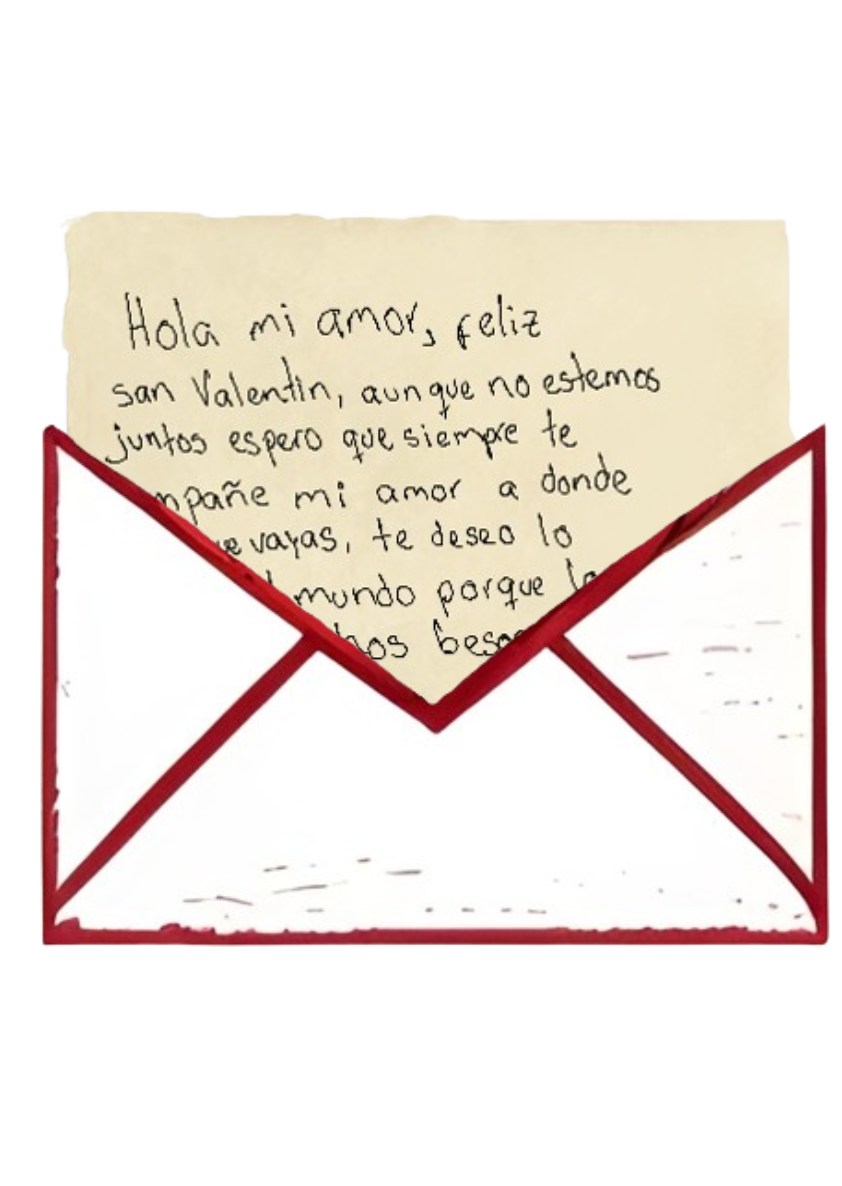 Hola mi amor, feliz
san Valentin, aunque no estemos
juntos espero que siempre te
mi amor a donde
vayas, te deseo lo
mundo porque